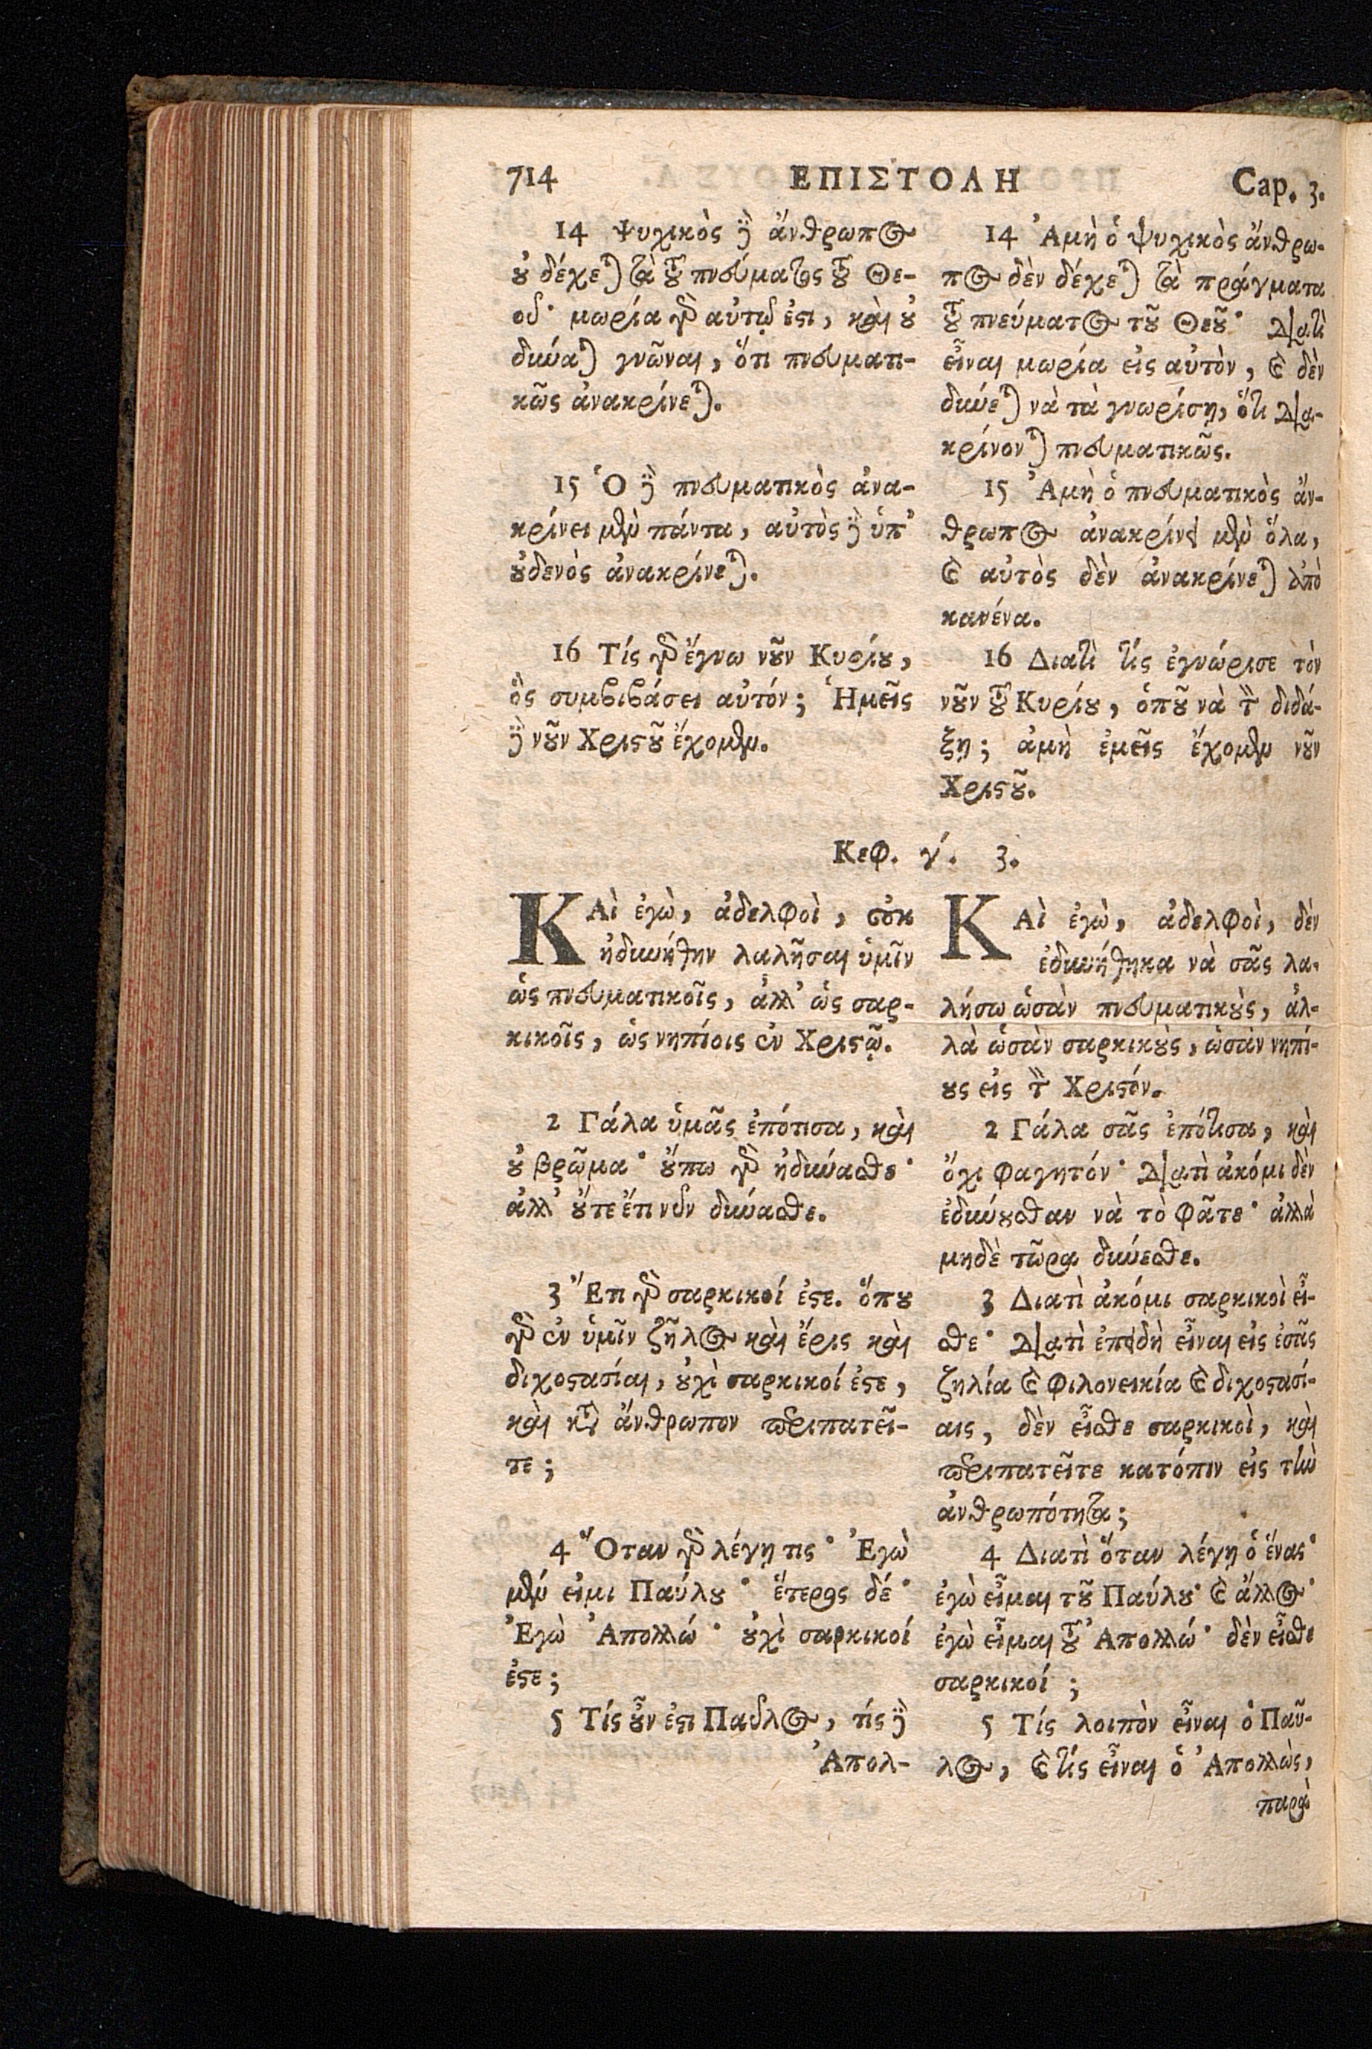 714 ΕΠΙΣΤΟΛΗ Cap. 3.
14 Ψυχικὸς δὲ ἄνθρωπος
οὐ δέχεται τὰ τοῦ πνεύματος τοῦ Θε-
οῦ· μωρία γὰρ αὐτῷ ἐστι, καὶ οὐ
δύναται γνῶναι, ὅτι πνευματι-
κῶς ἀνακρίνεται.
15 Ὁ δὲ πνευματικὸς ἀνα-
κρίνει μὲν πάντα, αὐτὸς δὲ ὑπ'
οὐδενὸς ἀνακρίνεται.
16 Τίς γὰρ ἔγνω νοῦν Κυρίου,
ὃς συμβιβάσει αὐτόν; Ἡμεῖς
δὲ νοῦν Χριστοῦ ἔχομεν.
14 Ἀμὴ ὁ ψυχικὸς ἄνθρω-
πος δὲν δέχεται τὰ πράγματα
τοῦ πνεύματος τοῦ Θεοῦ· διατὶ
εἶναι μωρία εἰς αὐτὸν, καὶ δὲν
δύνεται νὰ τὰ γνωρίσῃ, ὅτι δια-
κρίνονται πνευματικῶς.
15 Ἀμὴ ὁ πνευματικὸς ἄν-
θρωπος ἀνακρίνει μὲν ὅλα,
καὶ αὐτὸς δὲν ἀνακρίνεται ἀπὸ
κανένα.
16 Διατὶ τίς ἐγνώρισε τὸν
νοῦν τοῦ Κυρίου, ὁποῦ νὰ τὸν διδά-
ξῃ; ἀμὴ ἐμεῖς ἔχομεν νοῦν
Χριστοῦ.
Κεφ. γ΄. 3.
ΚΑὶ ἐγὼ, ἀδελφοὶ, οὐκ
ἠδυνήθην λαλῆσαι ὑμῖν
ὡς πνευματικοῖς, ἀλλ' ὡς σαρ-
κικοῖς, ὡς νηπίοις ἐν Χριστῷ.
2 Γάλα ὑμᾶς ἐπότισα, καὶ
οὐ βρῶμα· οὔπω γὰρ ἠδύνασθε·
ἀλλ' οὔτε ἔτι νῦν δύνασθε.
3 Ἔτι γὰρ σαρκικοί ἐστε. ὅπου
γὰρ ἐν ὑμῖν ζῆλος καὶ ἔρις καὶ
διχοστασίαι, οὐχὶ σαρκικοί ἐστε,
καὶ κατὰ ἄνθρωπον περιπατεῖ-
τε;
4 Ὅταν γὰρ λέγῃ τις· Ἐγὼ
μέν εἰμι Παύλου· ἕτερος δέ·
Ἐγὼ Ἀπολλώ· οὐχὶ σαρκικοί
ἐστε;
5 Τίς οὖν ἐστι Παῦλος, τίς δὲ
Ἀπολ-
ΚΑὶ ἐγὼ, ἀδελφοὶ, δὲν
ἐδυνήθηκα νὰ σᾶς λα-
λήσω ὡσὰν πνευματικοὺς, ἀλ-
λὰ ὡσὰν σαρκικοὺς, ὡσὰν νηπί-
ους εἰς τὸν Χριστόν.
2 Γάλα σᾶς ἐπότισα, καὶ
ὄχι φαγητόν· διατὶ ἀκόμι δὲν
ἐδύνουσθαν νὰ τὸ φᾶτε· ἀλλὰ
μηδὲ τῶρα δύνεσθε.
3 Διατὶ ἀκόμι σαρκικοὶ εἶ-
σθε· διατὶ ἐπειδὴ εἶναι εἰς ἐσᾶς
ζηλία καὶ φιλονεικία καὶ διχοστασί-
αις, δὲν εἶσθε σαρκικοὶ, καὶ
περιπατεῖτε κατόπιν εἰς τὴν
ἀνθρωπότητα;
4 Διατὶ ὅταν λέγῃ ὁ ἕνας·
ἐγὼ εἶμαι τοῦ Παύλου· καὶ ἄλλος·
ἐγὼ εἶμαι τοῦ Ἀπολλώ· δὲν εἶσθε
σαρκικοί;
5 Τίς λοιπὸν εἶναι ὁ Παῦ-
λος, καὶ τίς εἶναι ὁ Ἀπολλὼς,
παρὰ